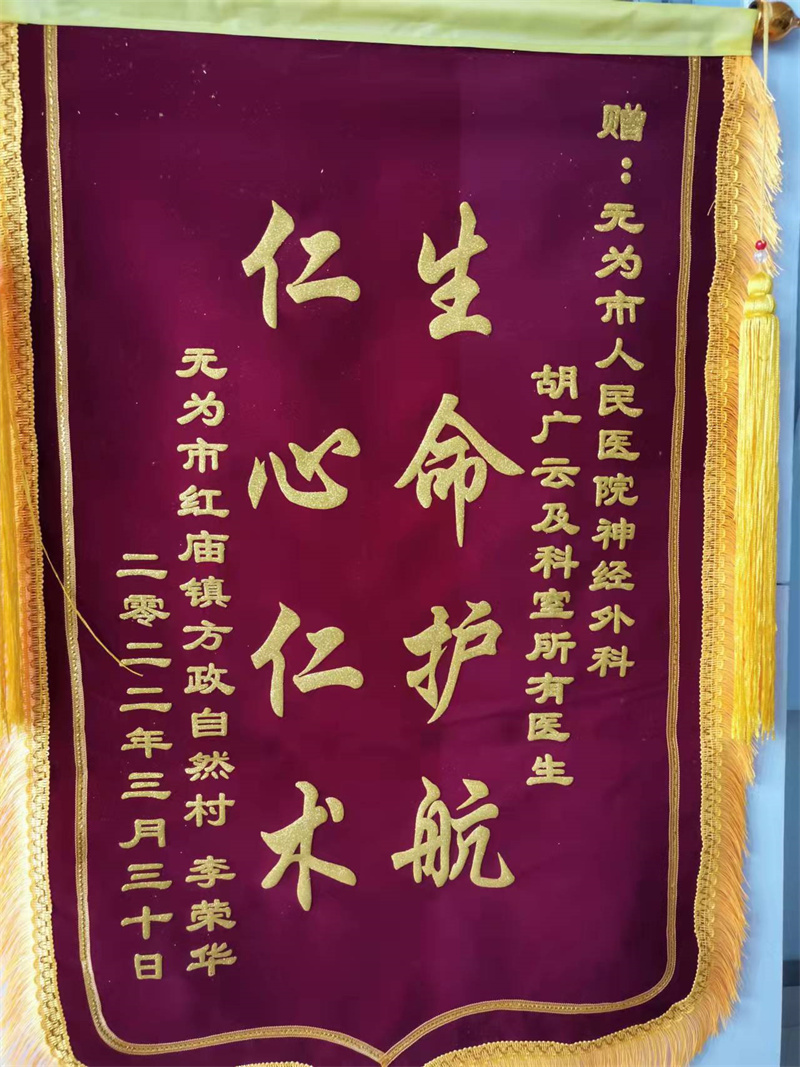 赠：无为市人民医院神经外科
胡广云及科室所有医生
生命护航
仁心仁术
无为市红庙镇方政自然村 李荣华
二零二二年三月三十日